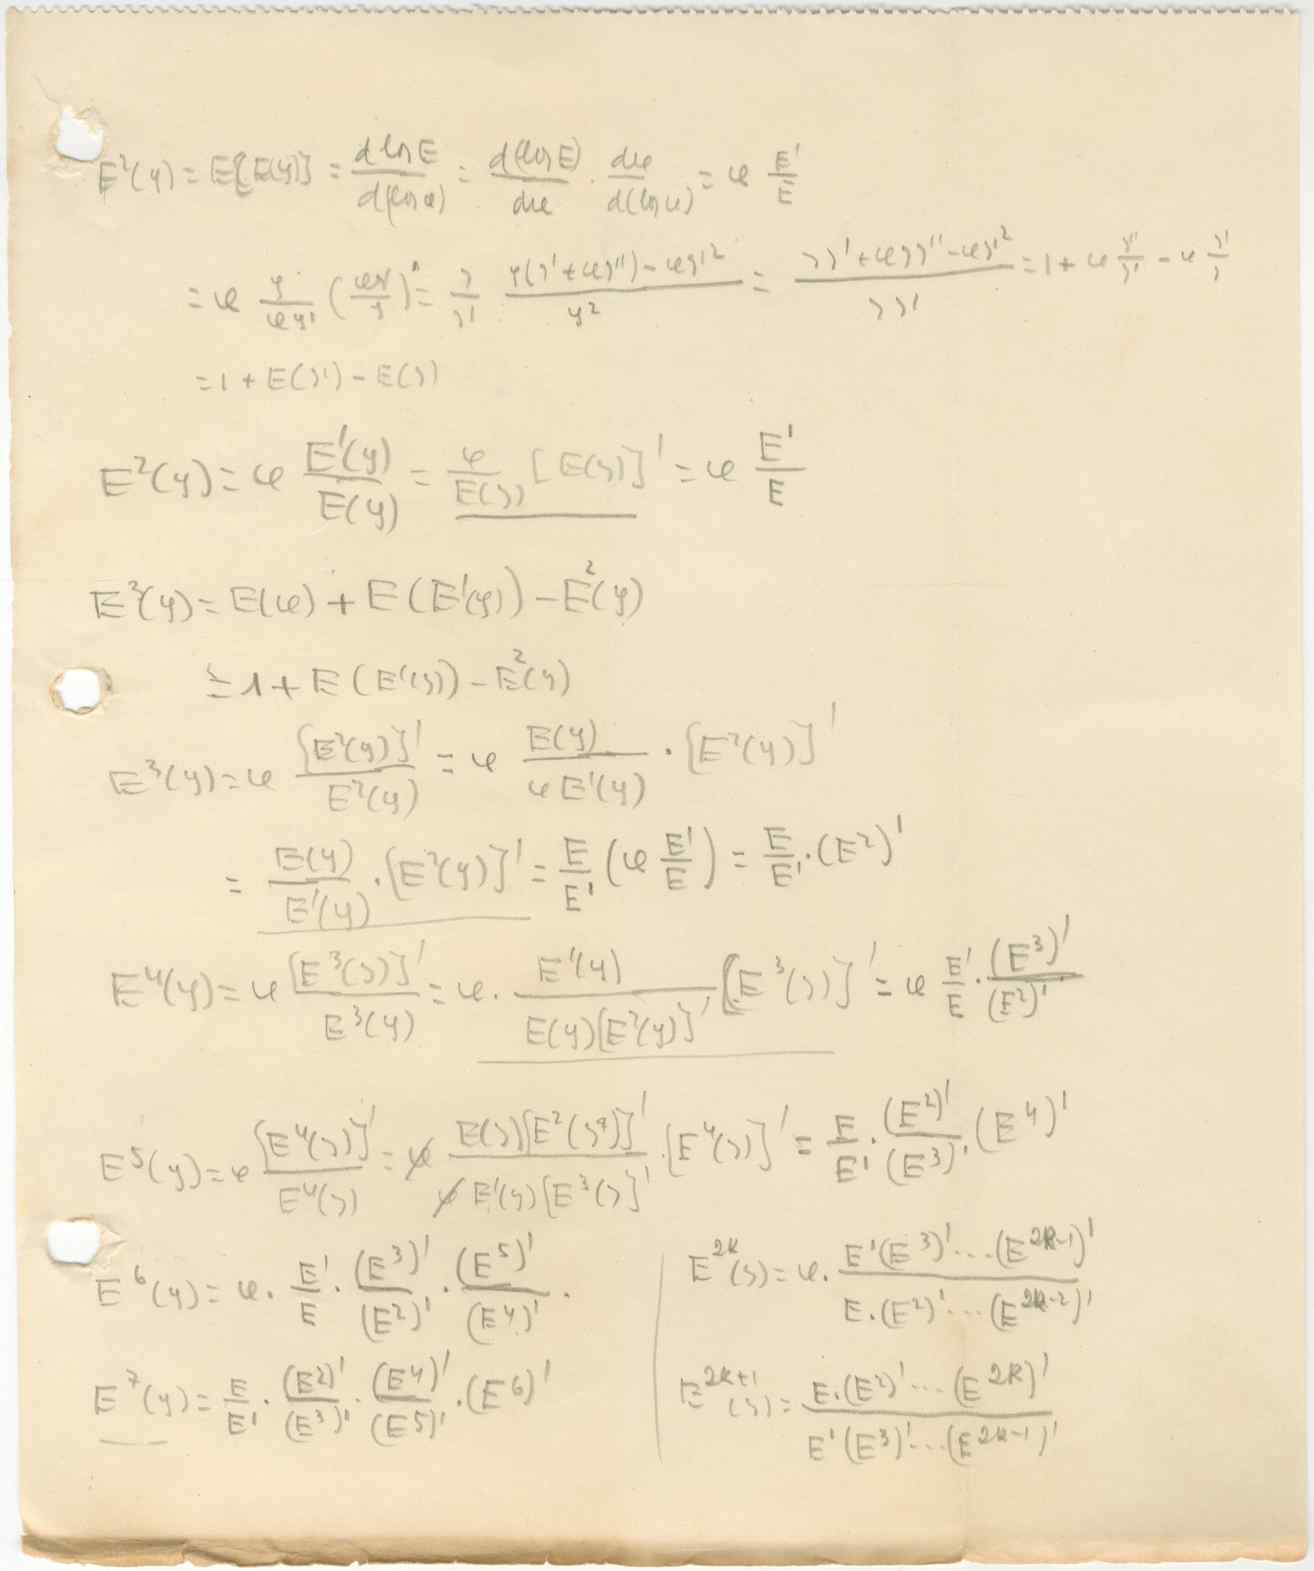 E²(y) = E[E(y)] = d log E / d(log x) = d(log E) / dx · dx / d(log x) = x E' / E
= x y / xy' (xy' / y)' = y / y' y(y' + xy'') − xy'² / y² = yy' + xyy'' − xy'² / yy' = 1 + x y'' / y' − x y' / y
= 1 + E(y') − E(y)
E²(y) = x E'(y) / E(y) = x / E(y) [E(y)]' = x E' / E
E³(y) = E(x) + E(E'(y)) − E²(y)
= 1 + E(E'(y)) − E²(y)
E³(y) = x [E²(y)]' / E²(y) = x E(y) / x E'(y) · [E²(y)]'
= E(y) / E'(y) · [E²(y)]' = E / E' (x E' / E)' = E / E' · (E²)'
E⁴(y) = x [E³(y)]' / E³(y) = x · E'(y) / E(y)[E²(y)]' [E³(y)]' = x E' / E · (E³)' / (E²)'
E⁵(y) = x [E⁴(y)]' / E⁴(y) = x E(y)[E²(y)]' / x E'(y)[E³(y)]' · [E⁴(y)]' = E / E' · (E²)' / (E³)' · (E⁴)'
E⁶(y) = x · E' / E · (E³)' / (E²)' · (E⁵)' / (E⁴)' ·
E⁷(y) = E / E' · (E²)' / (E³)' · (E⁴)' / (E⁵)' · (E⁶)'
E²ᵏ(y) = x · E'(E³)' ... (E²ᵏ⁻¹)' / E · (E²)' ... (E²ᵏ⁻²)'
E²ᵏ⁺¹(y) = E · (E²)' ... (E²ᵏ)' / E'(E³)' ... (E²ᵏ⁻¹)'